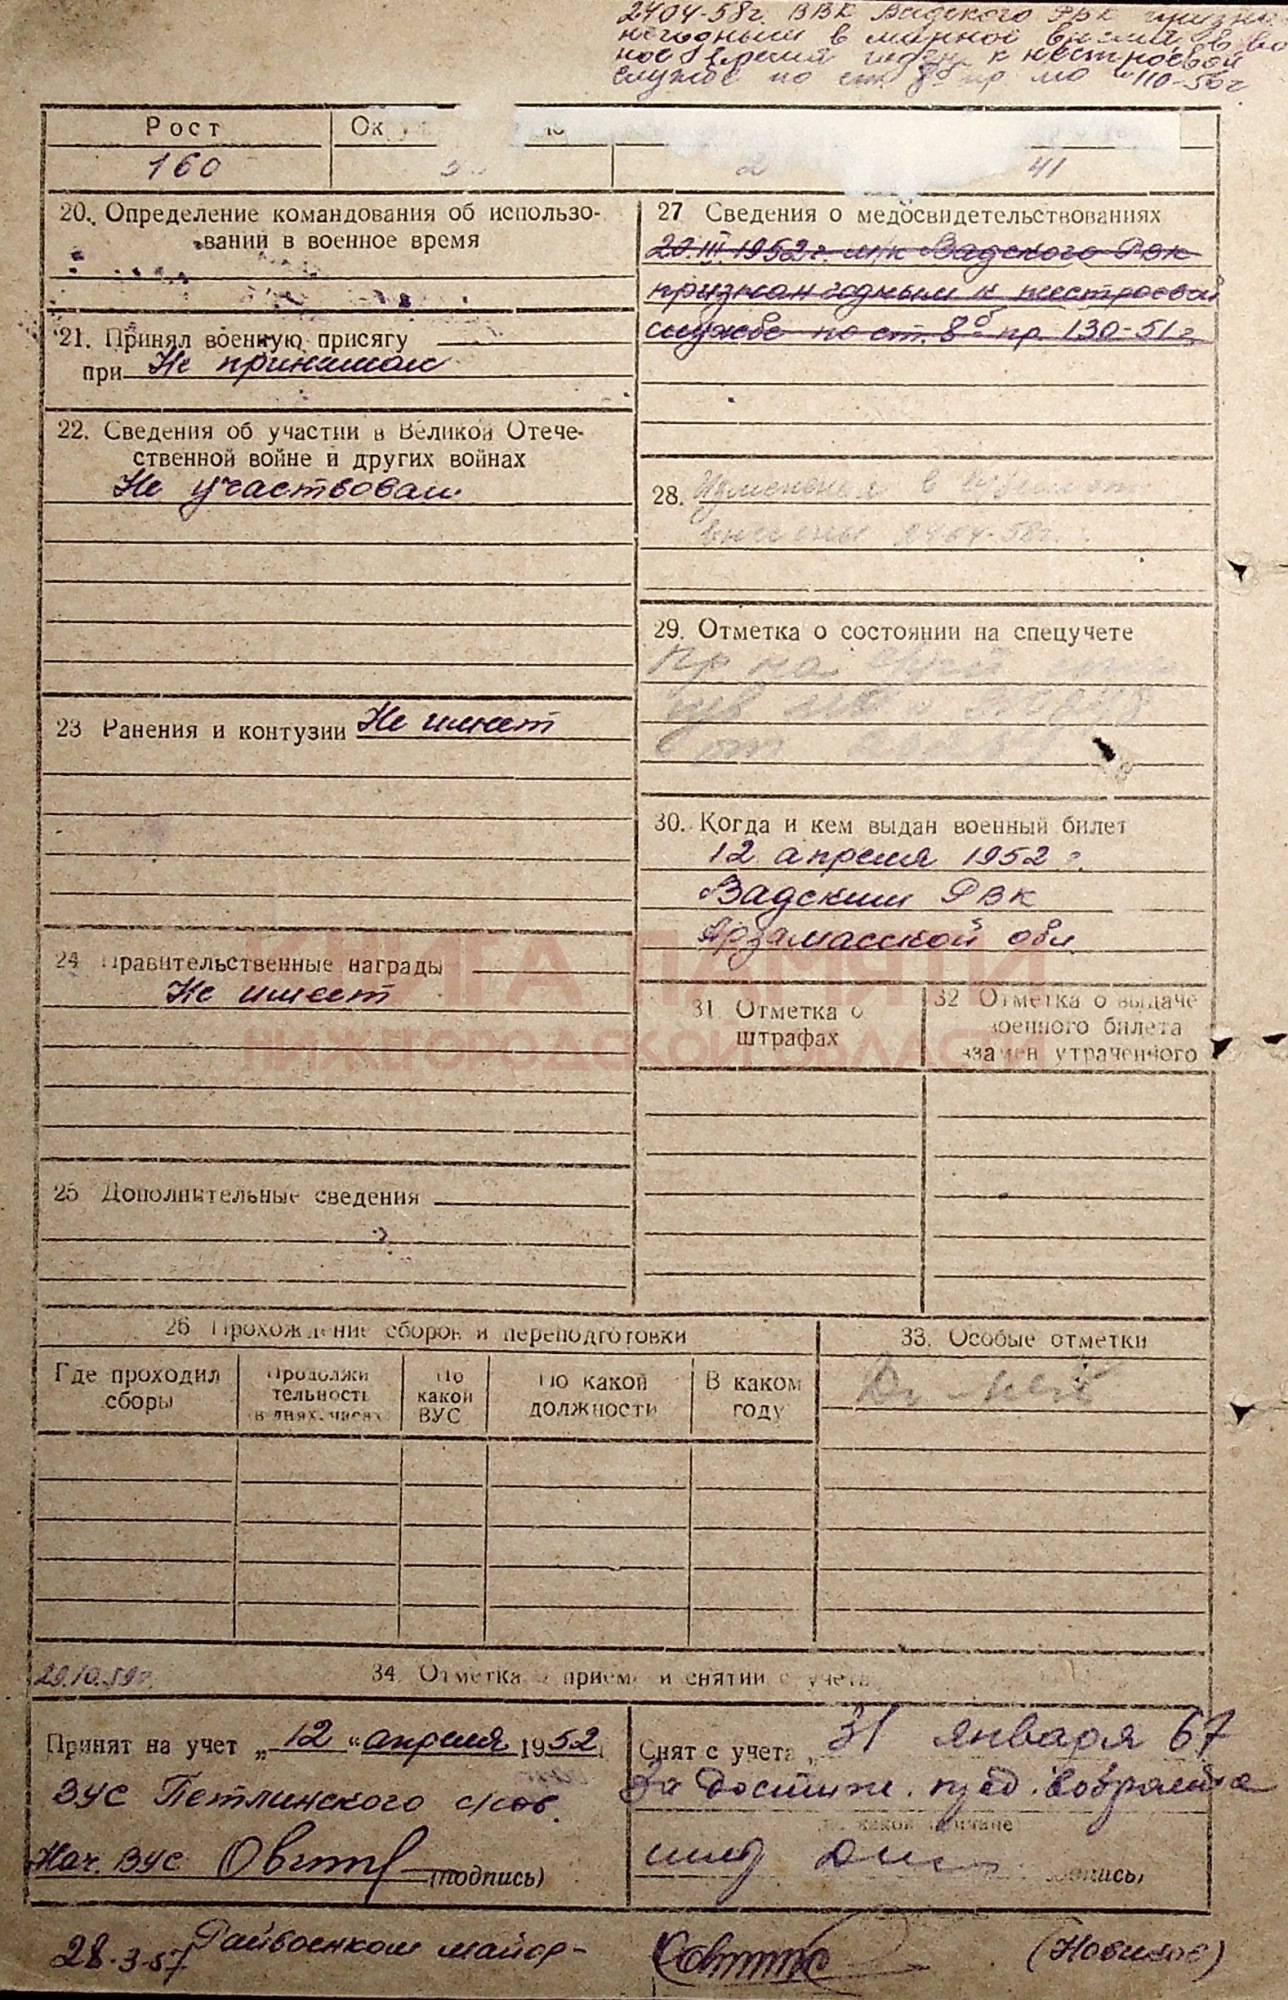 24 04-58г. ВВК Вадского РВК призна
негодным в мирное время, в во
ное время годен к нестроевой
службе по ст. 8 пр. мо 110-56г
Рост
Ок
160
2
41
20. Определение командования об использо-
вании в военное время
21. Принял военную присягу
при Не принимал
22. Сведения об участии в Великой Отече-
ственной войне и других войнах
Не участвовал.
23 Ранения и контузии Не имеет
24 Правительственные награды
Не имеет
25 Дополнительные сведения
27 Сведения о медосвидетельствованиях
20.III.1952г. м/к Вадского РВК
признан годным к нестроевой
службе по ст. 8б пр. 130-51г
28. Изменения в
внесены 24 04-58г.
29. Отметка о состоянии на спецучете
от
30. Когда и кем выдан военный билет
12 апреля 1952 г.
Вадским РВК
Арзамасской обл
31 Отметка о
штрафах
32 Отметка о выдаче
военного билета
взамен утраченного
КНИГА ПАМЯТИ
НИЖЕГОРОДСКОЙ ОБЛАСТИ
26 Прохождение сборов и переподготовки
Где проходил
сборы
Продолжи
тельность
в днях, часах
По
какой
ВУС
По какой
должности
В каком
году
33. Особые отметки
29.10.59г.
34 Отметка о приеме и снятии с учета
Принят на учет „12“ апреля 1952 г.
ВУС Петлинского с/сов.
Нач. ВУС (подпись)
Снят с учета „ 31 января 67
За достиж. пред. возраста
по какой причине
подпись)
28-3-57 Райвоенком майор-
(Новиков)